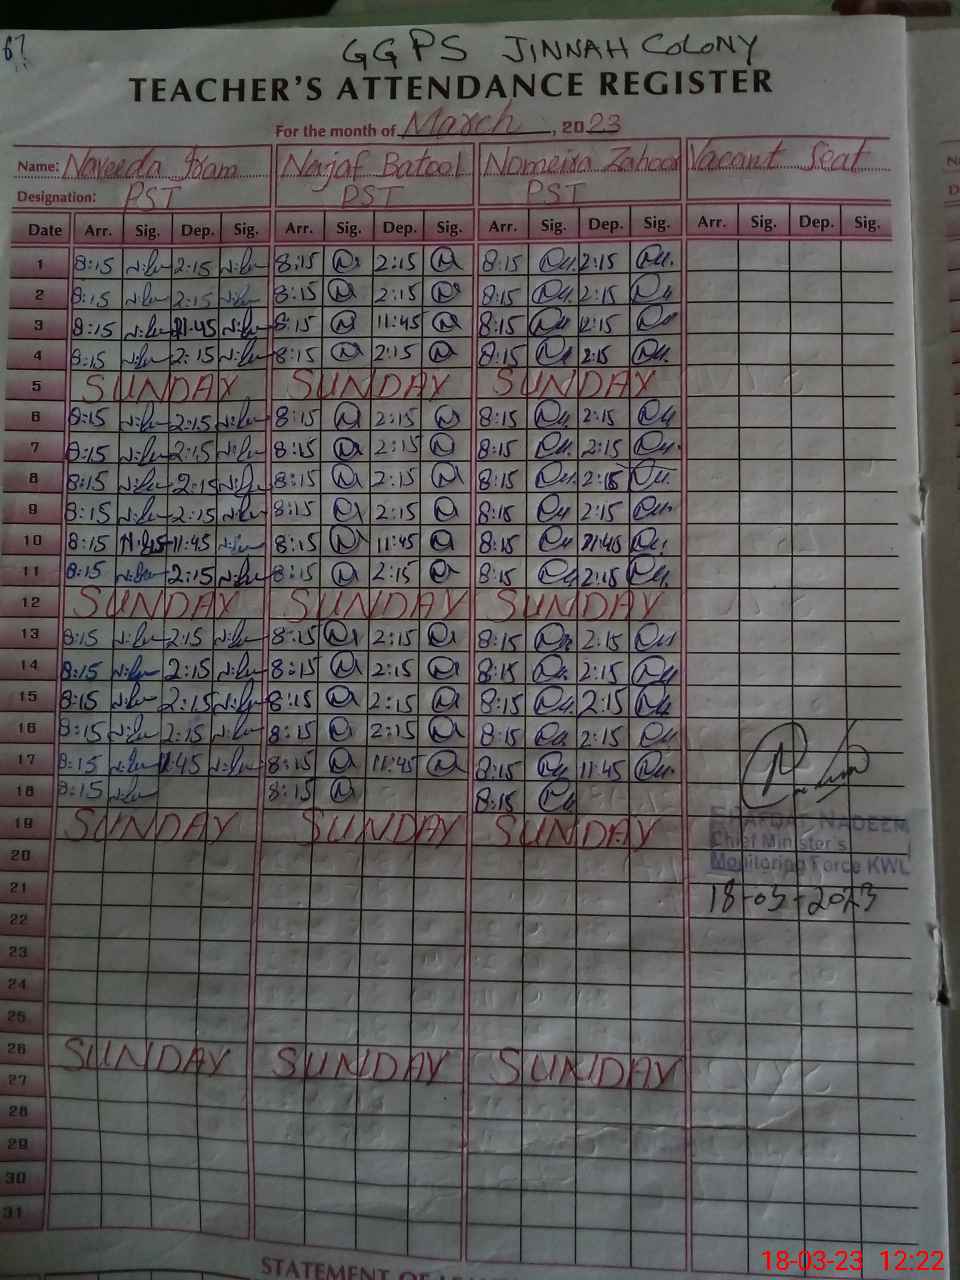 67
GGPS JINNAH COLONY
TEACHER'S ATTENDANCE REGISTER
For the month of March, 2023
Name: Naveeda Iram Nerjaf Batool Nomeira Zahoor Vacant Seat
Designation: PST PST PST
Date Arr. Sig. Dep. Sig. Arr. Sig. Dep. Sig. Arr. Sig. Dep. Sig. Arr. Sig. Dep. Sig.
1 8:15 2:15 8:15 2:15 8:15 2:15
2 8:15 2:15 8:15 2:15 8:15 2:15
3 8:15 11:45 8:15 11:45 8:15
4 8:15 2:15 8:15 2:15 8:15 2:15
5 SUNDAY SUNDAY SUNDAY
6 8:15 2:15 8:15 2:15 8:15 2:15
7 8:15 2:15 8:15 2:15 8:15 2:15
8 8:15 2:15 8:15 2:15 8:15 2:15
9 8:15 2:15 8:15 2:15 8:15 2:15
10 8:15 11:45 8:15 11:45 8:15 11:45
11 8:15 2:15 8:15 2:15 8:15 2:15
12 SUNDAY SUNDAY SUNDAY
13 8:15 2:15 8:15 2:15 8:15 2:15
14 8:15 2:15 8:15 2:15 8:15 2:15
15 8:15 2:15 8:15 2:15 8:15 2:15
16 8:15 2:15 8:15 2:15 8:15 2:15
17 8:15 11:45 8:15 11:45 8:15 11:45
18 8:15 8:15 8:15
19 SUNDAY SUNDAY SUNDAY
NADEEM
Chief Minister's
20
Monitoring Force KWL
21
18-03-2023
22
23
24
25
26 SUNDAY SUNDAY SUNDAY
27
28
29
30
31
STATEMENT OF
18-03-23 12:22